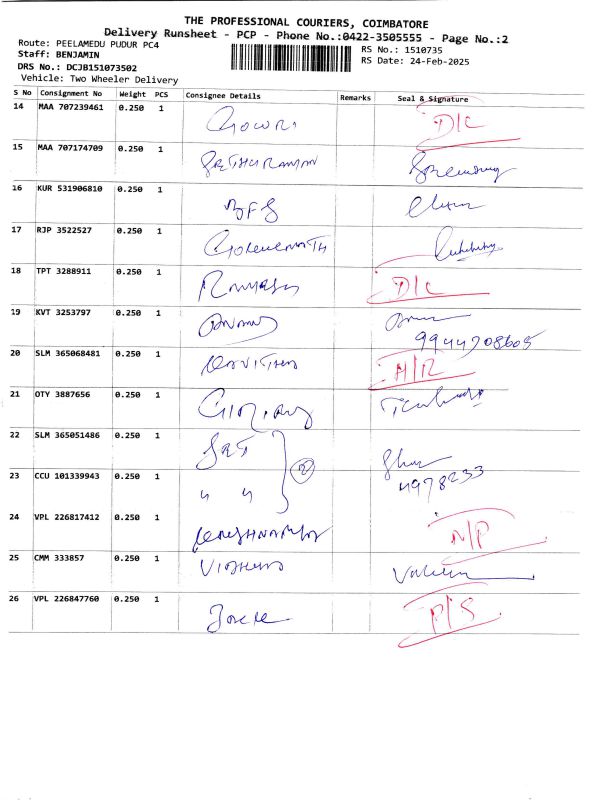 THE PROFESSIONAL COURIERS, COIMBATORE
Delivery Runsheet - PCP - Phone No.:0422-3505555 - Page No.:2
Route: PEELAMEDU PUDUR PC4
Staff: BENJAMIN
DRS No.: DCJB151073502
Vehicle: Two Wheeler Delivery
RS No.: 1510735
RS Date: 24-Feb-2025
S No Consignment No Weight PCS Consignee Details Remarks Seal & Signature
14 MAA 707239461 0.250 1 Gowri D/C
15 MAA 707174709 0.250 1
16 KUR 531906810 0.250 1 BFS
17 RJP 3522527 0.250 1
18 TPT 3288911 0.250 1 D/C
19 KVT 3253797 0.250 1
20 SLM 365068481 0.250 1 Kavitha
21 OTY 3887656 0.250 1
22 SLM 365051486 0.250 1 SRI
23 CCU 101339943 0.250 1 " " 2
24 VPL 226817412 0.250 1 N/P
25 CMM 333857 0.250 1
26 VPL 226847760 0.250 1